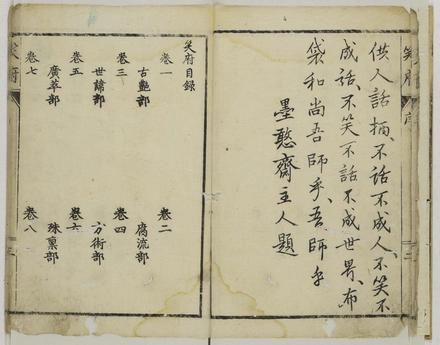 笑府 序
供人話柄、不話不成人、不笑不
成話、不笑不話不成世界、布
袋和尚吾師乎、吾師乎
墨憨齋主人題
笑府目錄
卷一 卷二
古艷部 腐流部
卷三 卷四
世諱部 方術部
卷五 卷六
廣萃部 殊稟部
卷七 卷八
笑府